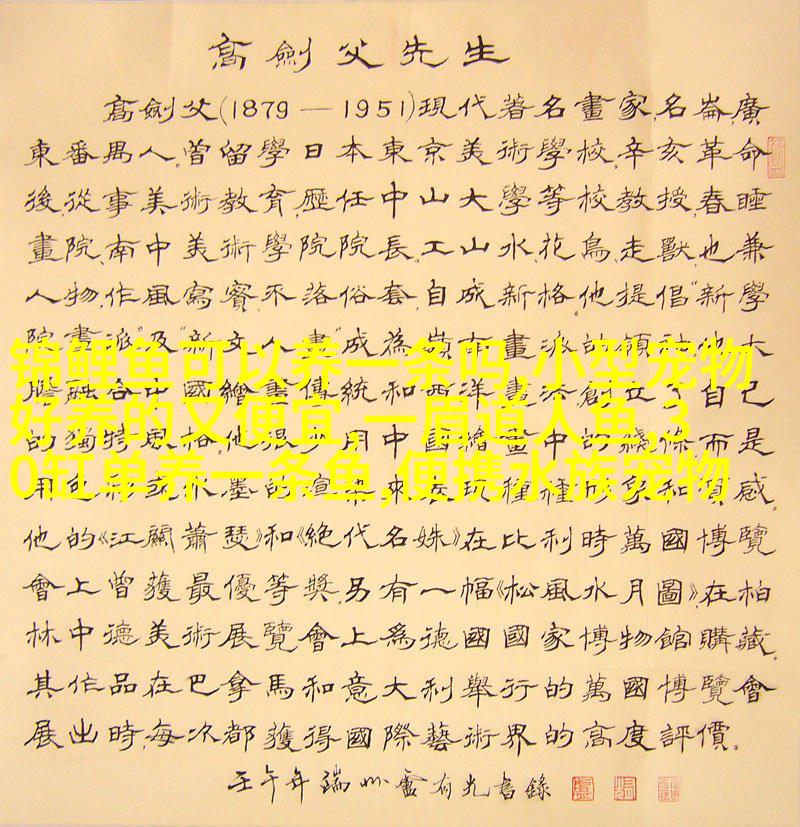 高劍父先生
高劍父(1879—1951)現代著名畫家,名崙,廣
東番禺人。曾留學日本東京美術學校。辛亥革命
後,從事美術教育,歷任中山大學等校教授,春睡
畫院、南中美術學院院長。工山水、花鳥、走獸,也兼
人物,作風寫實,不落俗套,自成新格。他提倡"新學
院畫派"及"新文人畫"成為嶺畫派的領
錦鯉鱼可以养一条吗,小型宠物
好养的又便宜,一眉道人鱼,3
0缸单养一条鱼,便携水族宠物
融合中國繪畫傳統和西洋畫畫法創立了自己
的獨特風格。他很少用中國繪畫中的綫條而是
用色彩或水墨的渲染來表現種種形象和質感。
他的《江關蕭瑟》和《絕代名姝》在比利時萬國博覽
會上曾獲最優等獎。另有一幅《松風水月圖》,在柏
林中德美術展覽會上為德國國家博物館購藏。
其作品在巴拿馬和意大利舉行的萬國博覽會
展出時,每次都獲得國際藝術界的高度評價。
壬午年端州盧有光書錄